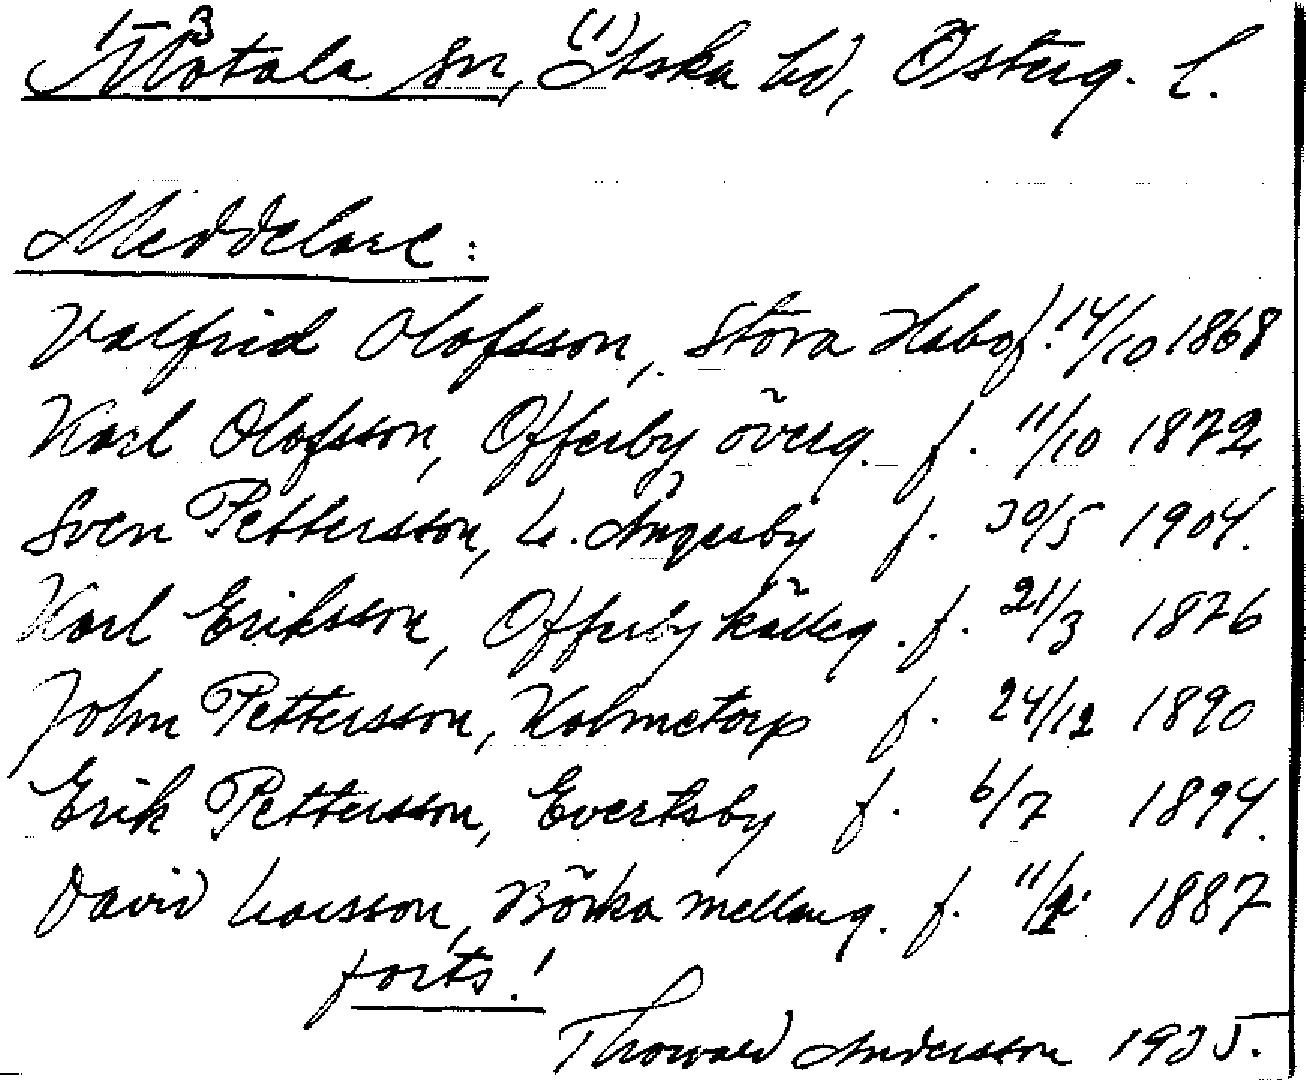 1-3 (1)
Motala sn, Aska hd, Österg. l.
Meddelare:
Valfrid Olofsson, Stora Habo f. 14/10 1868
Karl Olofsson, Offerby överg. f. 11/10 1872
Sven Pettersson, L. Ängesby f. 30/5 1904.
Karl Eriksson, Offerby källeg. f. 21/3 1876
John Pettersson, Holmetorp f. 24/12 1890
Erik Pettersson, Evertsby f. 6/7 1894.
David Larsson, Börka mellang. f. 11/ 1887
forts.!
Thorvald Andersson 1935.